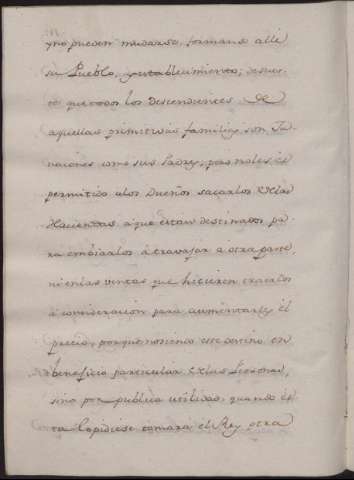 y no pueden mudarse, forman alli
su Pueblo, y establecimiento; de suer-
te que todos los descendientes de
aquellas primitivas familias son Ya-
naconas como sus Padres, pero no les es
permitido a los Dueños sacarlos de las
Haciendas à que están destinados pa-
ra embiarlos à travajar à otra parte,
ni en las ventas que hicieren traerlos
à consideracion para aumentarles el
precio, porque no siendo este destino en
beneficio particular de las Personas,
sino por publica utilidad, quando es-
ta lo pidiese tomara el Rey otra